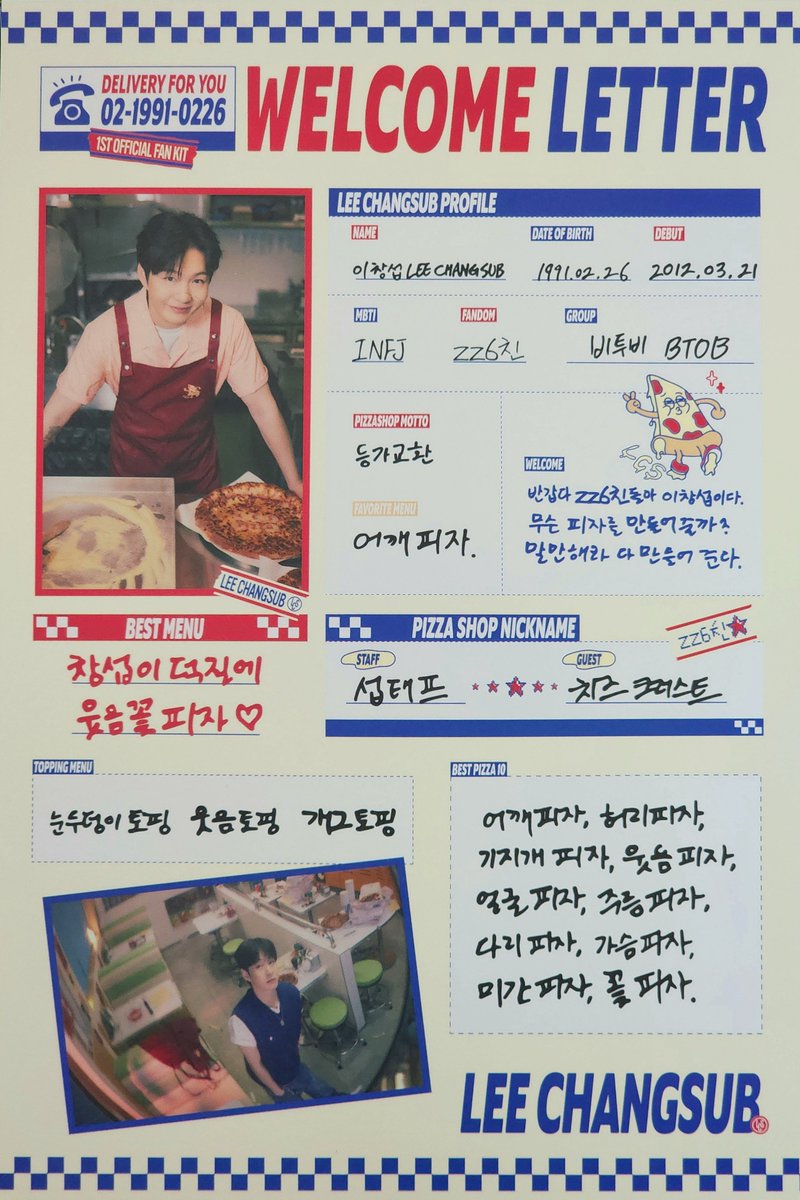 DELIVERY FOR YOU
02-1991-0226
1ST OFFICIAL FAN KIT
WELCOME LETTER
LEE CHANGSUB PROFILE
NAME
이창섭 LEE CHANGSUB
DATE OF BIRTH
1991.02.26
DEBUT
2012.03.21
MBTI
INFJ
FANDOM
ZZ6친
GROUP
비투비 BTOB
PIZZASHOP MOTTO
등가교환
FAVORITE MENU
어깨 피자.
LCS
WELCOME
반갑다 ZZ6친들아 이창섭이다.
무슨 피자를 만들어줄까?
말만해라 다 만들어 준다.
LEE CHANGSUB
BEST MENU
창섭이 덕질에
웃음꽃 피자♡
PIZZA SHOP NICKNAME
ZZ6친
STAFF
섭태프
GUEST
치즈 크러스트
TOPPING MENU
눈두덩이 토핑 웃음토핑 개그토핑
BEST PIZZA 10
어깨피자, 허리피자,
기지개 피자, 웃음피자,
얼굴 피자, 주름피자,
다리피자, 가슴피자,
미간피자, 꽃 피자.
LEE CHANGSUB